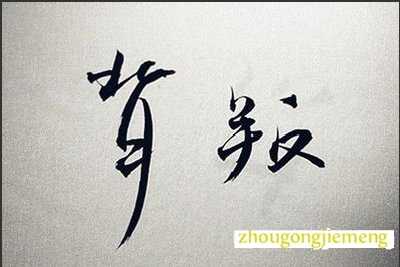 背叛
zhougongjiemeng